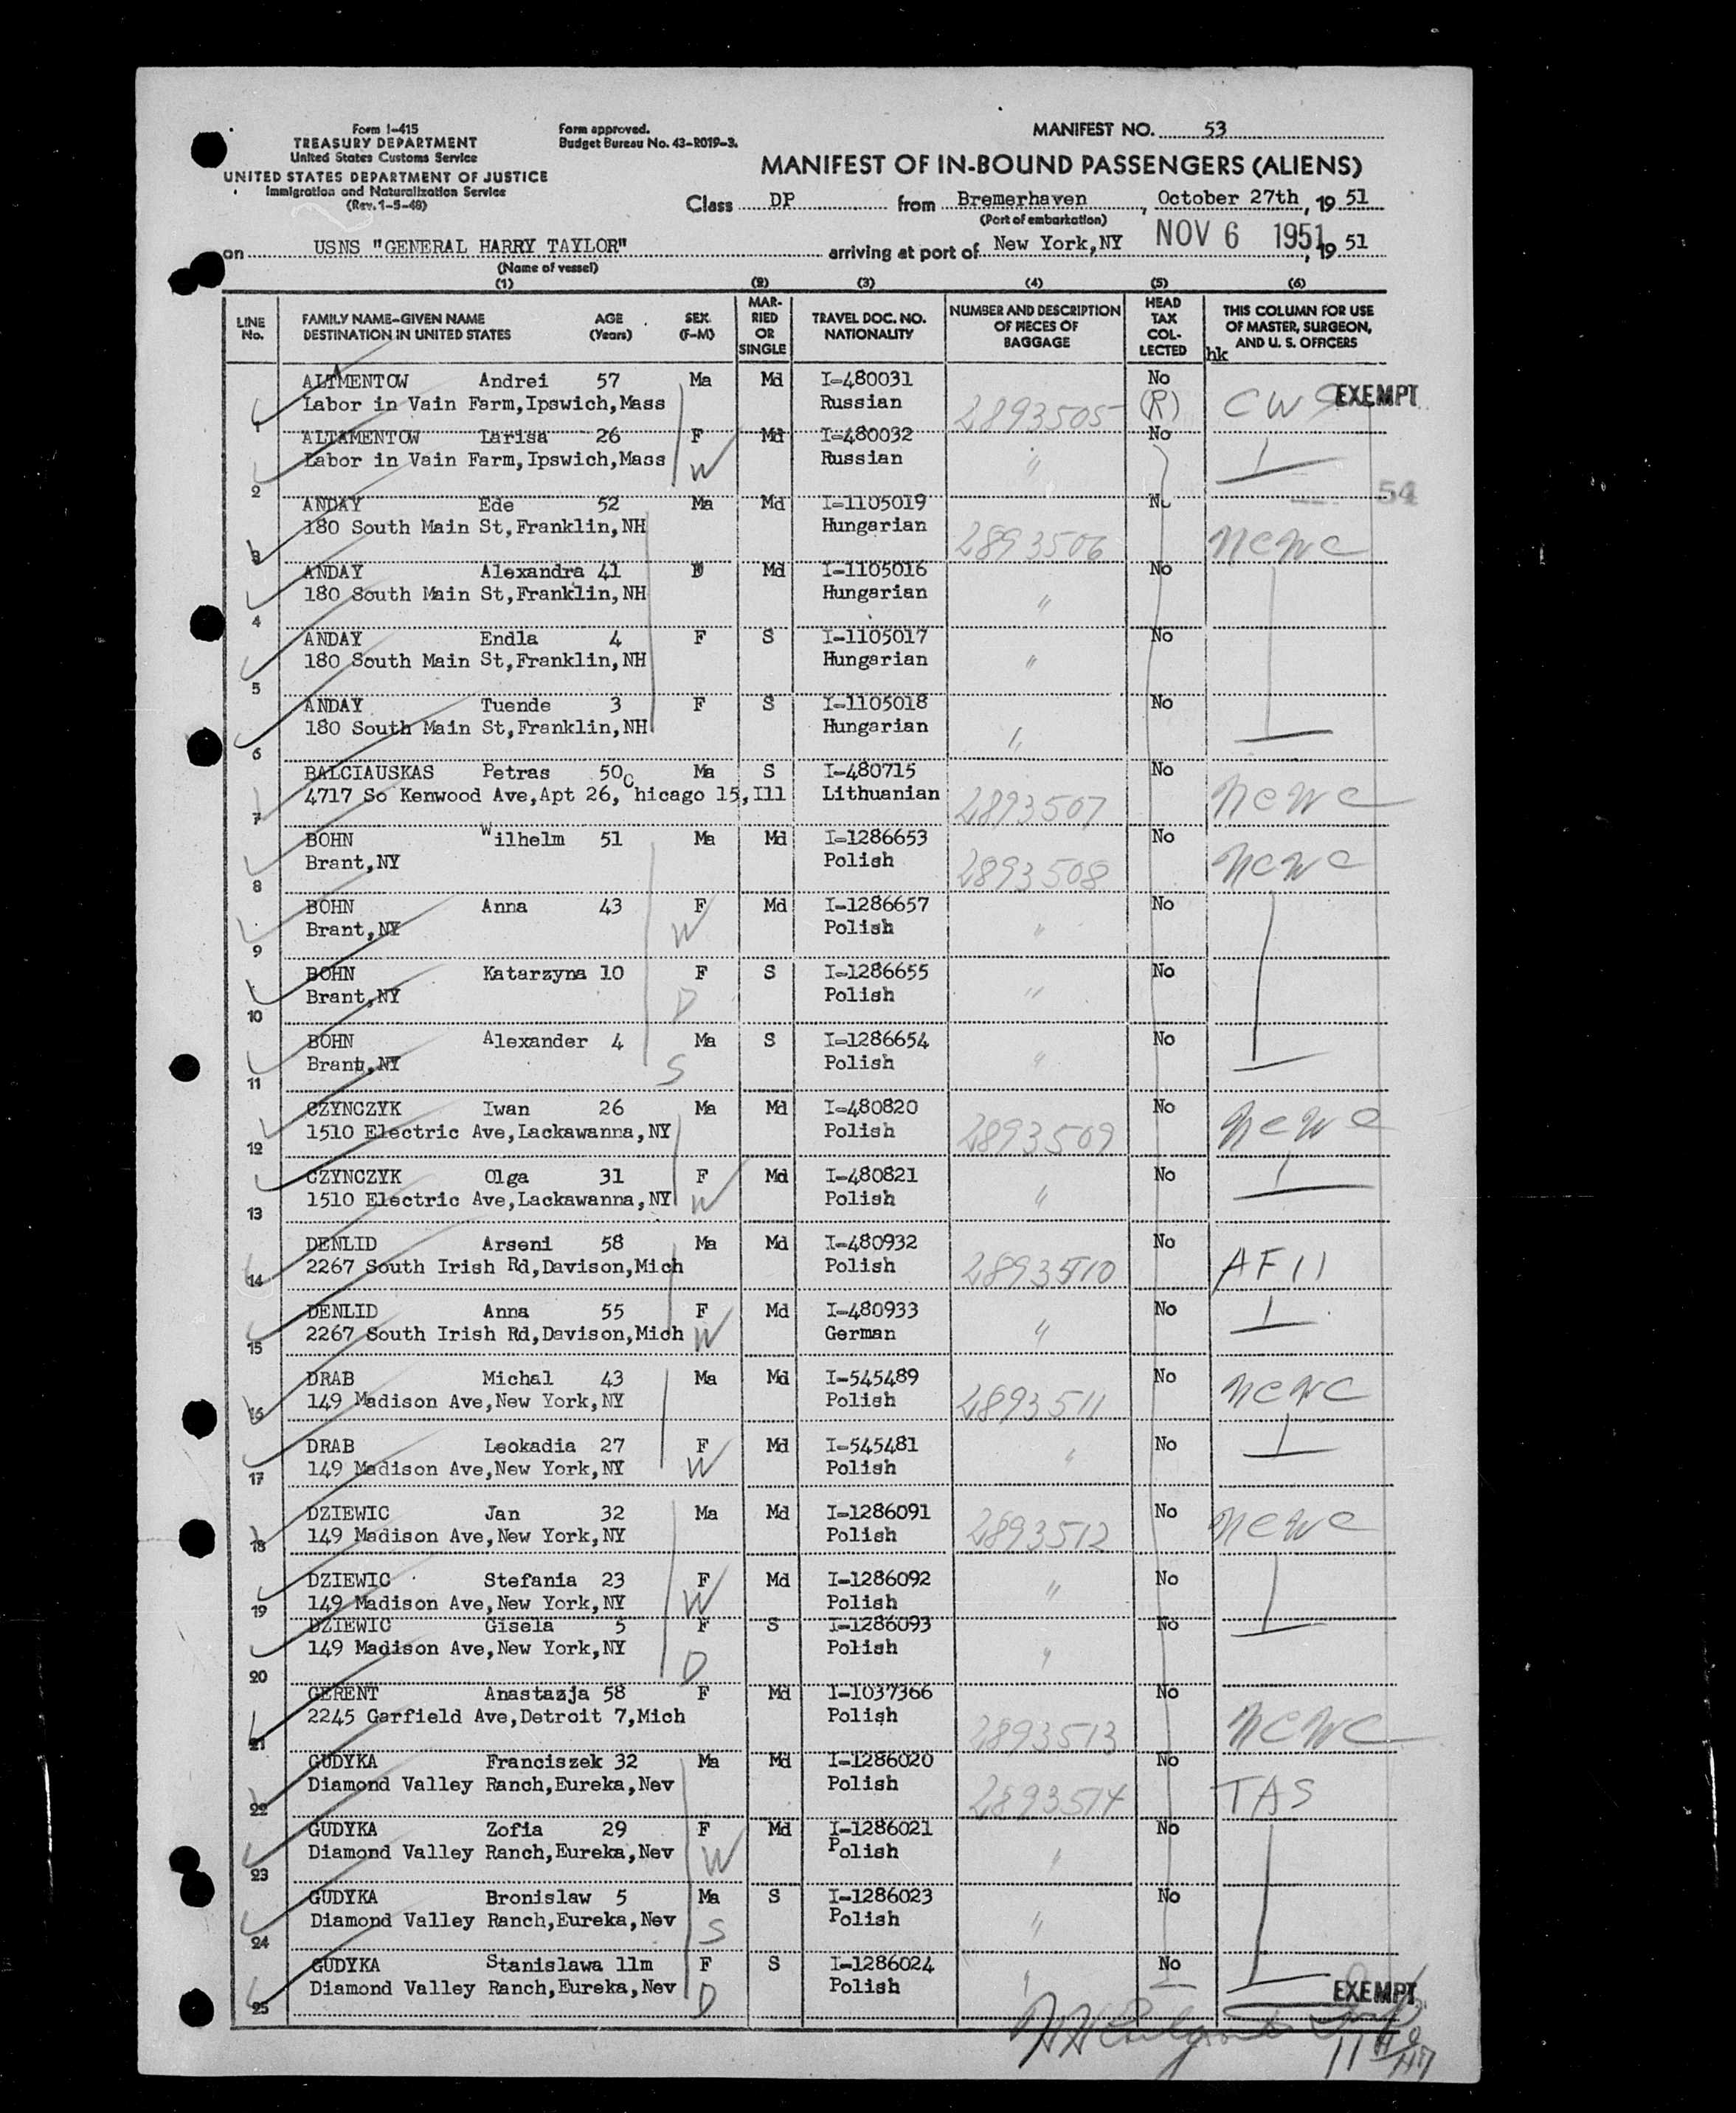 Form I-415
TREASURY DEPARTMENT
United States Customs Service
UNITED STATES DEPARTMENT OF JUSTICE
Immigration and Naturalization Service
(Rev. 1-5-48)
Form approved.
Budget Bureau No. 43-R019-3.
MANIFEST NO. 53
MANIFEST OF IN-BOUND PASSENGERS (ALIENS)
Class DP from Bremerhaven, October 27th, 19 51
(Port of embarkation)
on USNS "GENERAL HARRY TAYLOR" arriving at port of New York,NY NOV 6 1951, 19 51
(Name of vessel)
(1) (2) (3) (4) (5) (6)
LINE No. FAMILY NAME-GIVEN NAME DESTINATION IN UNITED STATES AGE (Years) SEX (F-M) MARRIED OR SINGLE TRAVEL DOC. NO. NATIONALITY NUMBER AND DESCRIPTION OF PIECES OF BAGGAGE HEAD TAX COLLECTED THIS COLUMN FOR USE OF MASTER, SURGEON, AND U. S. OFFICERS
hk
ALTMENTOW Andrei 57 Ma Md I-480031 No EXEMPT
1 Labor in Vain Farm,Ipswich,Mass Russian 2893505 (R) CWS
ALTAMENTOW Larisa 26 F Md I-480032 No
2 Labor in Vain Farm,Ipswich,Mass W Russian "
54
ANDAY Ede 52 Ma Md I-1105019 No
3 180 South Main St,Franklin,NH Hungarian 2893506 NCWC
ANDAY Alexandra 41 F Md I-1105016 No
4 180 South Main St,Franklin,NH Hungarian "
ANDAY Endla 4 F S I-1105017 No
5 180 South Main St,Franklin,NH Hungarian "
ANDAY Tuende 3 F S I-1105018 No
6 180 South Main St,Franklin,NH Hungarian "
BALCIAUSKAS Petras 50 Ma S I-480715 No
7 4717 So Kenwood Ave,Apt 26, Chicago 15,Ill Lithuanian 2893507 NCWC
BOHN Wilhelm 51 Ma Md I-1286653 No
8 Brant,NY Polish 2893508 NCWC
BOHN Anna 43 F Md I-1286657 No
9 Brant,NY W Polish "
BOHN Katarzyna 10 F S I-1286655 No
10 Brant,NY D Polish "
BOHN Alexander 4 Ma S I-1286654 No
11 Brant,NY S Polish "
CZYNCZYK Iwan 26 Ma Md I-480820 No
12 1510 Electric Ave,Lackawanna,NY Polish 2893509 NCWC
CZYNCZYK Olga 31 F Md I-480821 No
13 1510 Electric Ave,Lackawanna,NY W Polish "
DENLID Arseni 58 Ma Md I-480932 No
14 2267 South Irish Rd,Davison,Mich Polish 2893510 AFII
DENLID Anna 55 F Md I-480933 No
15 2267 South Irish Rd,Davison,Mich W German "
DRAB Michal 43 Ma Md I-545489 No
16 149 Madison Ave,New York,NY Polish 2893511 NCWC
DRAB Leokadia 27 F Md I-545481 No
17 149 Madison Ave,New York,NY W Polish "
DZIEWIC Jan 32 Ma Md I-1286091 No
18 149 Madison Ave,New York,NY Polish 2893512 NCWC
DZIEWIC Stefania 23 F Md I-1286092 No
19 149 Madison Ave,New York,NY W Polish "
DZIEWIC Gisela 5 F S I-1286093 No
20 149 Madison Ave,New York,NY D Polish "
GERENT Anastazja 58 F Md I-1037366 No
21 2245 Garfield Ave,Detroit 7,Mich Polish 2893513 NCWC
GUDYKA Franciszek 32 Ma Md I-1286020 No
22 Diamond Valley Ranch,Eureka,Nev Polish 2893514 TAS
GUDYKA Zofia 29 F Md I-1286021 No
23 Diamond Valley Ranch,Eureka,Nev W Polish "
GUDYKA Bronislaw 5 Ma S I-1286023 No
24 Diamond Valley Ranch,Eureka,Nev S Polish "
GUDYKA Stanislawa 11m F S I-1286024 No
25 Diamond Valley Ranch,Eureka,Nev D Polish " EXEMPT